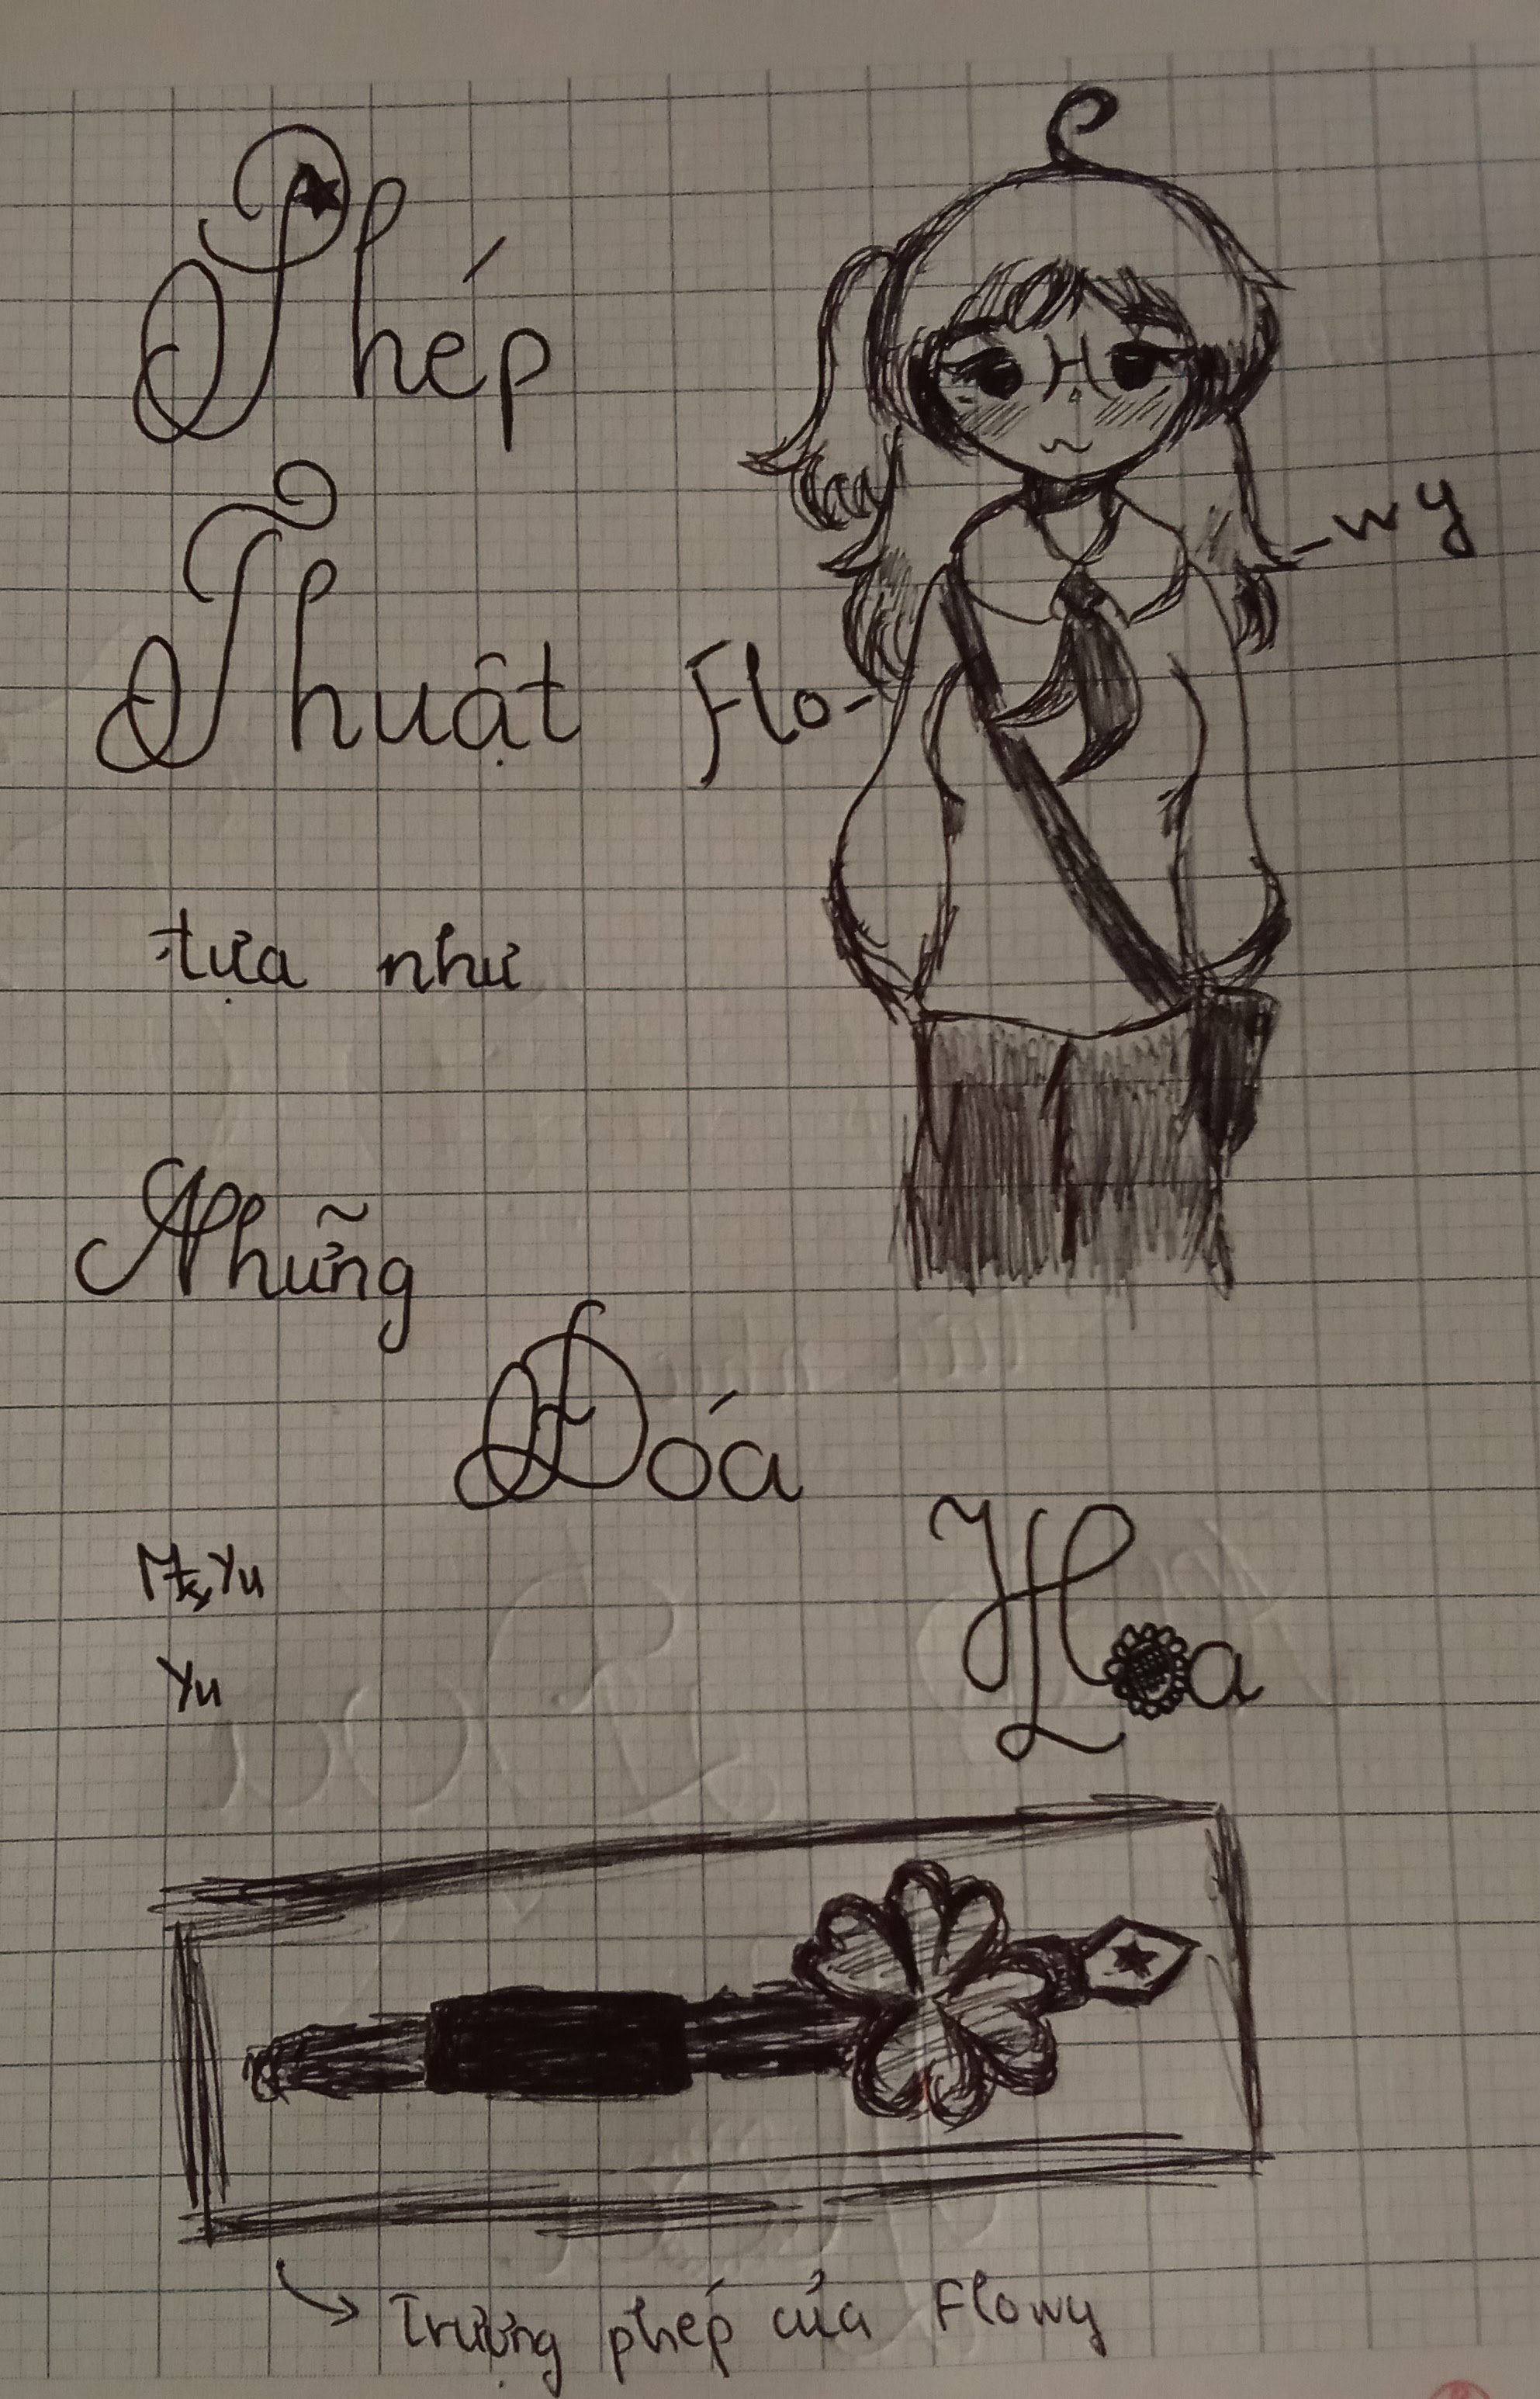 Phép
Thuật
Flo-
-wy
tựa như
Những
Đóa
Hoa
Yu
Yu
Trượng phép của Flowy